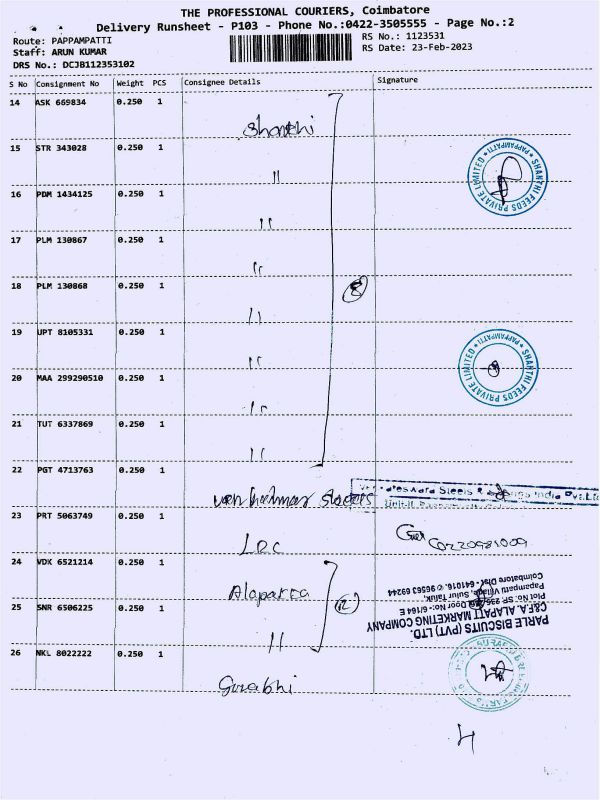 THE PROFESSIONAL COURIERS, Coimbatore
Delivery Runsheet - P103 - Phone No.:0422-3505555 - Page No.:2
Route: PAPPAMPATTI
Staff: ARUN KUMAR
DRS No.: DCJB112353102
RS No.: 1123531
RS Date: 23-Feb-2023
S No Consignment No Weight PCS Consignee Details Signature
14 ASK 669834 0.250 1
Shanthi
15 STR 343028 0.250 1
"
16 PDM 1434125 0.250 1
"
17 PLM 130867 0.250 1
"
18 PLM 130868 0.250 1
"
8
19 UPT 8105331 0.250 1
"
20 MAA 299290510 0.250 1
"
21 TUT 6337869 0.250 1
"
SHANTHI FEEDS PRIVATE LIMITED
PAPPAMPATTI
SHANTHI FEEDS PRIVATE LIMITED
PAPPAMPATTI
22 PGT 4713763 0.250 1
Steels India Pvt.Ltd
23 PRT 5063749 0.250 1
LRC
24 VDX 6521214 0.250 1
25 SNR 6506225 0.250 1
"
PARLE BISCUITS (PVT) LTD.
C&F.A. ALAPATT MARKETING COMPANY
Door No:- 6/164 E
Pappampatti Village, Sulur Taluk,
Coimbatore Dist - 641016.
26 NKL 8022222 0.250 1
4